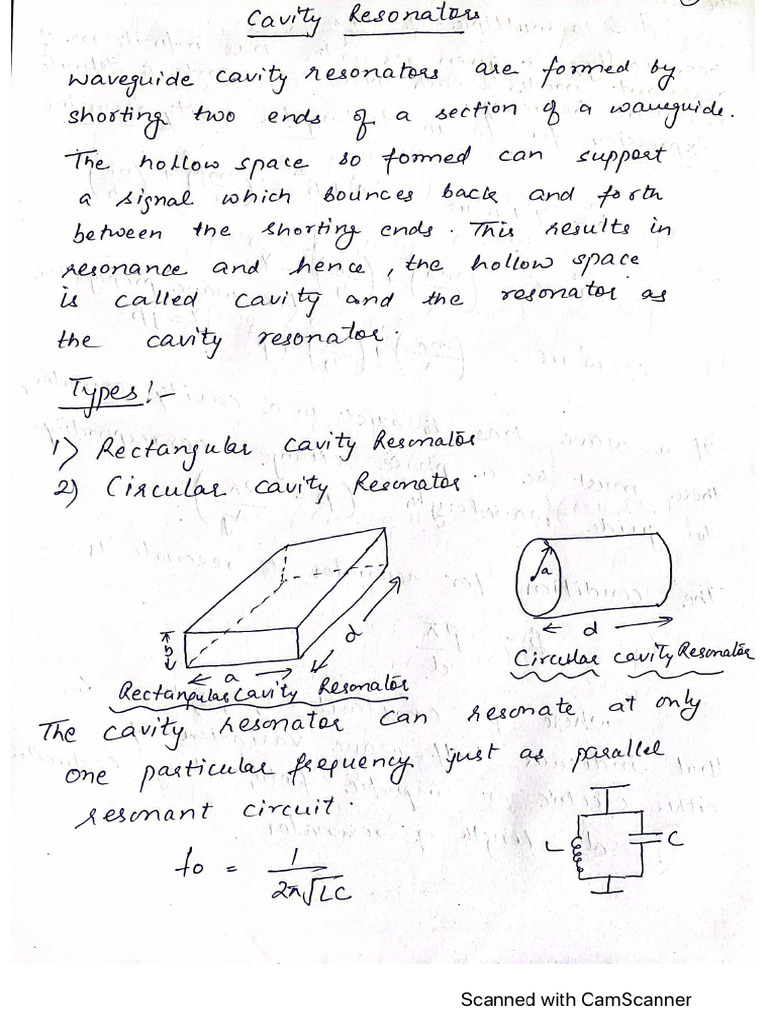 Cavity Resonators
Waveguide cavity resonators are formed by
shorting two ends of a section of a waveguide.
The hollow space so formed can support
a signal which bounces back and forth
between the shorting ends. This results in
resonance and hence, the hollow space
is called cavity and the resonator as
the cavity resonator.
Types:-
1) Rectangular cavity Resonator
2) Circular cavity Resonator.
b
a
d
Rectangular Cavity Resonator
a
d
Circular cavity Resonator
The cavity resonator can resonate at only
one particular frequency just as parallel
resonant circuit.
L
C
fo = 1/2π√LC
Scanned with CamScanner